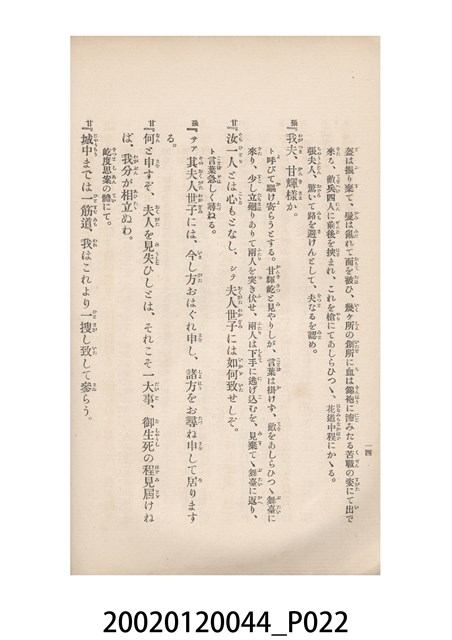 一四
盔は振り棄て、髮は亂れて面を被ひ、幾ケ所の創所に血は錦袍に滲みたる苦戰の姿にて出で
來る、敵兵四人に前後を挾まれ、これを槍にてあしらひつゝ、花道中程にかゝる。
張夫人、驚いて路を避けんとして、夫なるを認め。
張『我夫、甘輝樣か。
ト呼びて駈け寄らうとする。甘輝屹と見やりしが、言葉は掛けず、敵をあしらひつゝ舞臺に
來り、少し立廻りありて兩人を突き伏せ、兩人は下手に逃げ込むを、見棄てゝ舞臺に返り、
甘『汝一人とは心もとなし、シテ夫人世子には如何致せしぞ。
ト言葉急しく尋ねる。
張『サア其夫人世子には、今し方おはぐれ申し、諸方をお尋ね申して居ります
る。
甘『何と申すぞ、夫人を見失ひしとは、それこそ一大事、御生死の程見屆けね
ば、我分が相立ぬわ。
屹度思案の體にて。
甘『城中までは一筋道、我はこれより一捜し致して參らう。
20020120044_P022